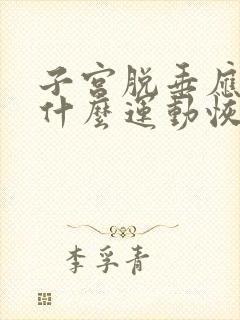 子宮脱垂應
什麼運動恢
李孚青